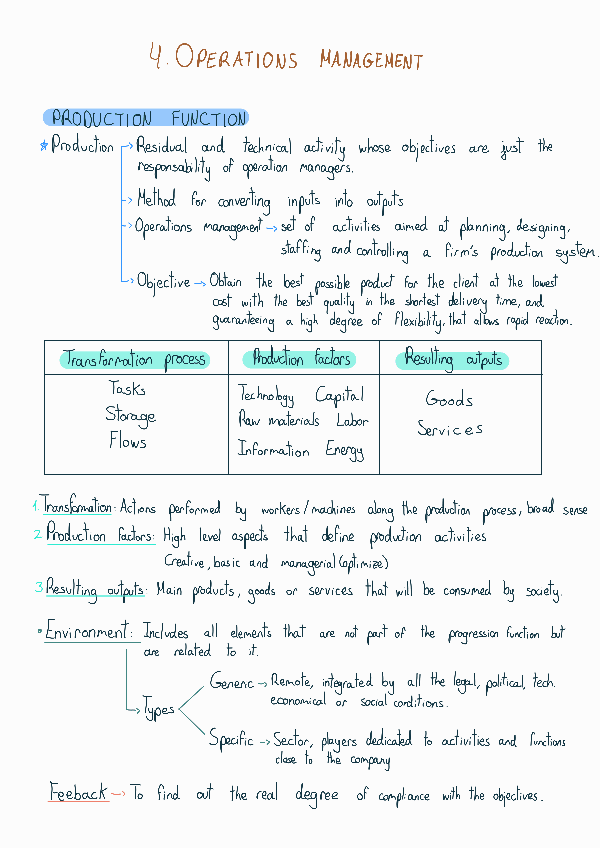 4. OPERATIONS MANAGEMENT
PRODUCTION FUNCTION
* Production → Residual and technical activity whose objectives are just the
responsability of operation managers.
→ Method for converting inputs into outputs
→ Operations management → set of activities aimed at planning, designing,
staffing and controlling a firm's production system.
→ Objective → Obtain the best possible product for the client at the lowest
cost with the best quality in the shortest delivery time, and
guaranteeing a high degree of flexibility, that allows rapid reaction.
Transformation process Production factors Resulting outputs
Tasks Technology Capital Goods
Storage Raw materials Labor Services
Flows Information Energy
1. Transformation: Actions performed by workers/machines along the production process, broad sense
2. Production factors: High level aspects that define production activities
Creative, basic and managerial (optimize)
3. Resulting outputs: Main products, goods or services that will be consumed by society.
• Environment: Includes all elements that are not part of the progression function but
are related to it.
→ Types
Generic → Remote, integrated by all the legal, political, tech.
economical or social conditions.
Specific → Sector, players dedicated to activities and functions
close to the company
Feeback → To find out the real degree of compliance with the objectives.